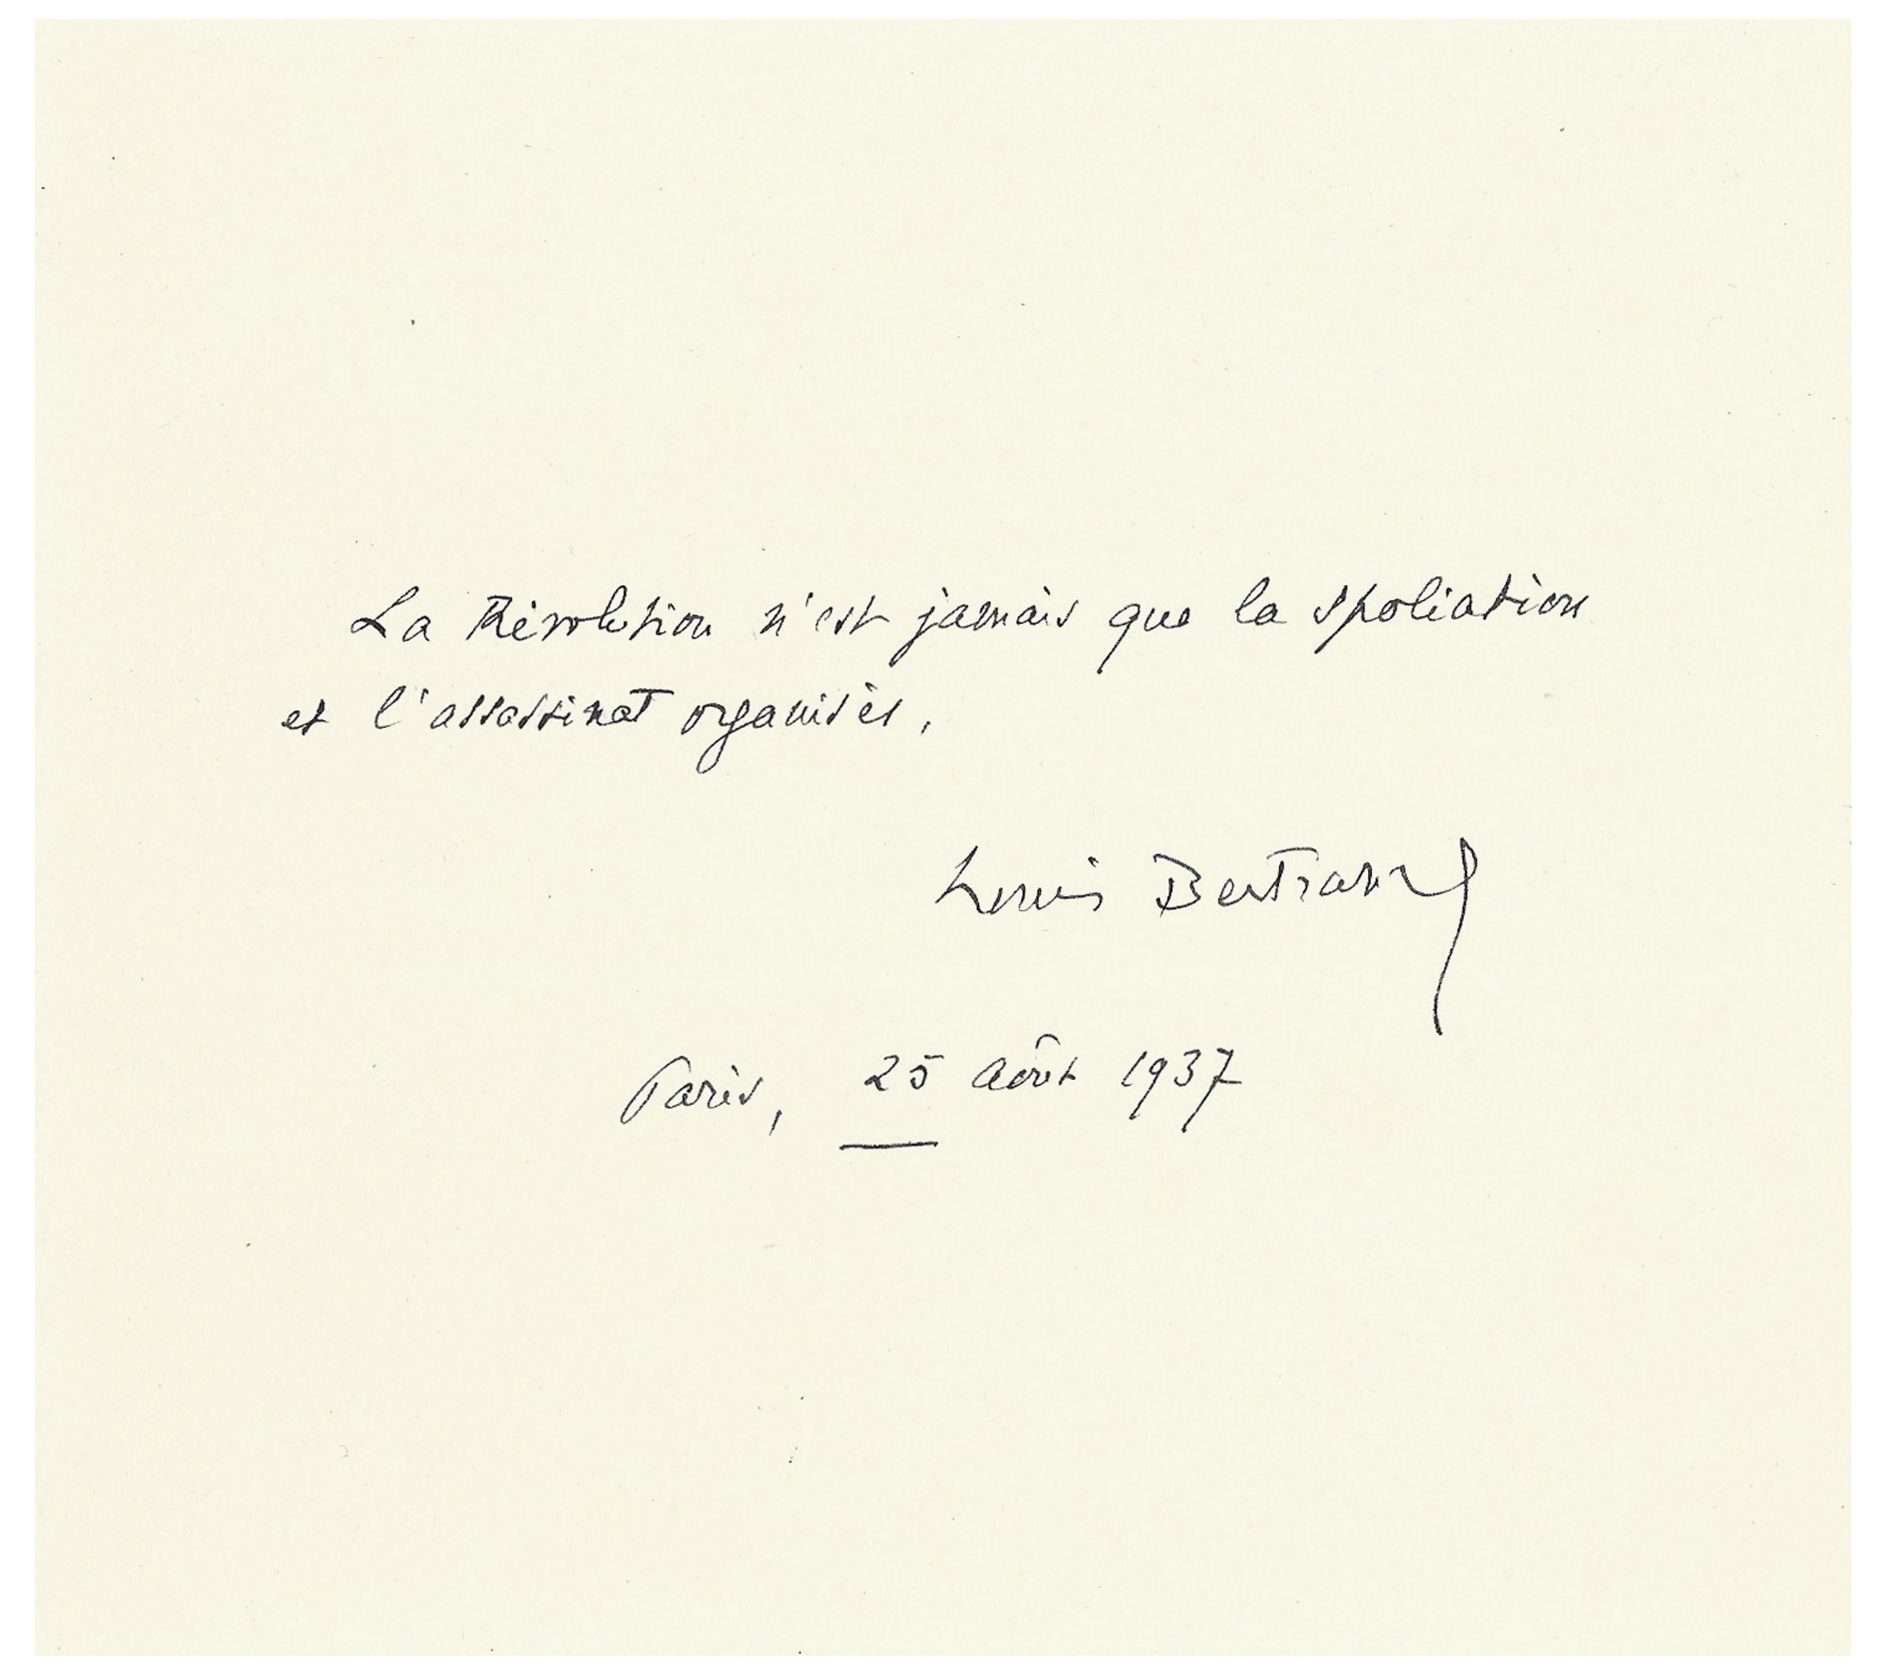 La Révolution n'est jamais que la spoliation
et l'assassinat organisés.
Louis Bertrand
Paris, 25 août 1937